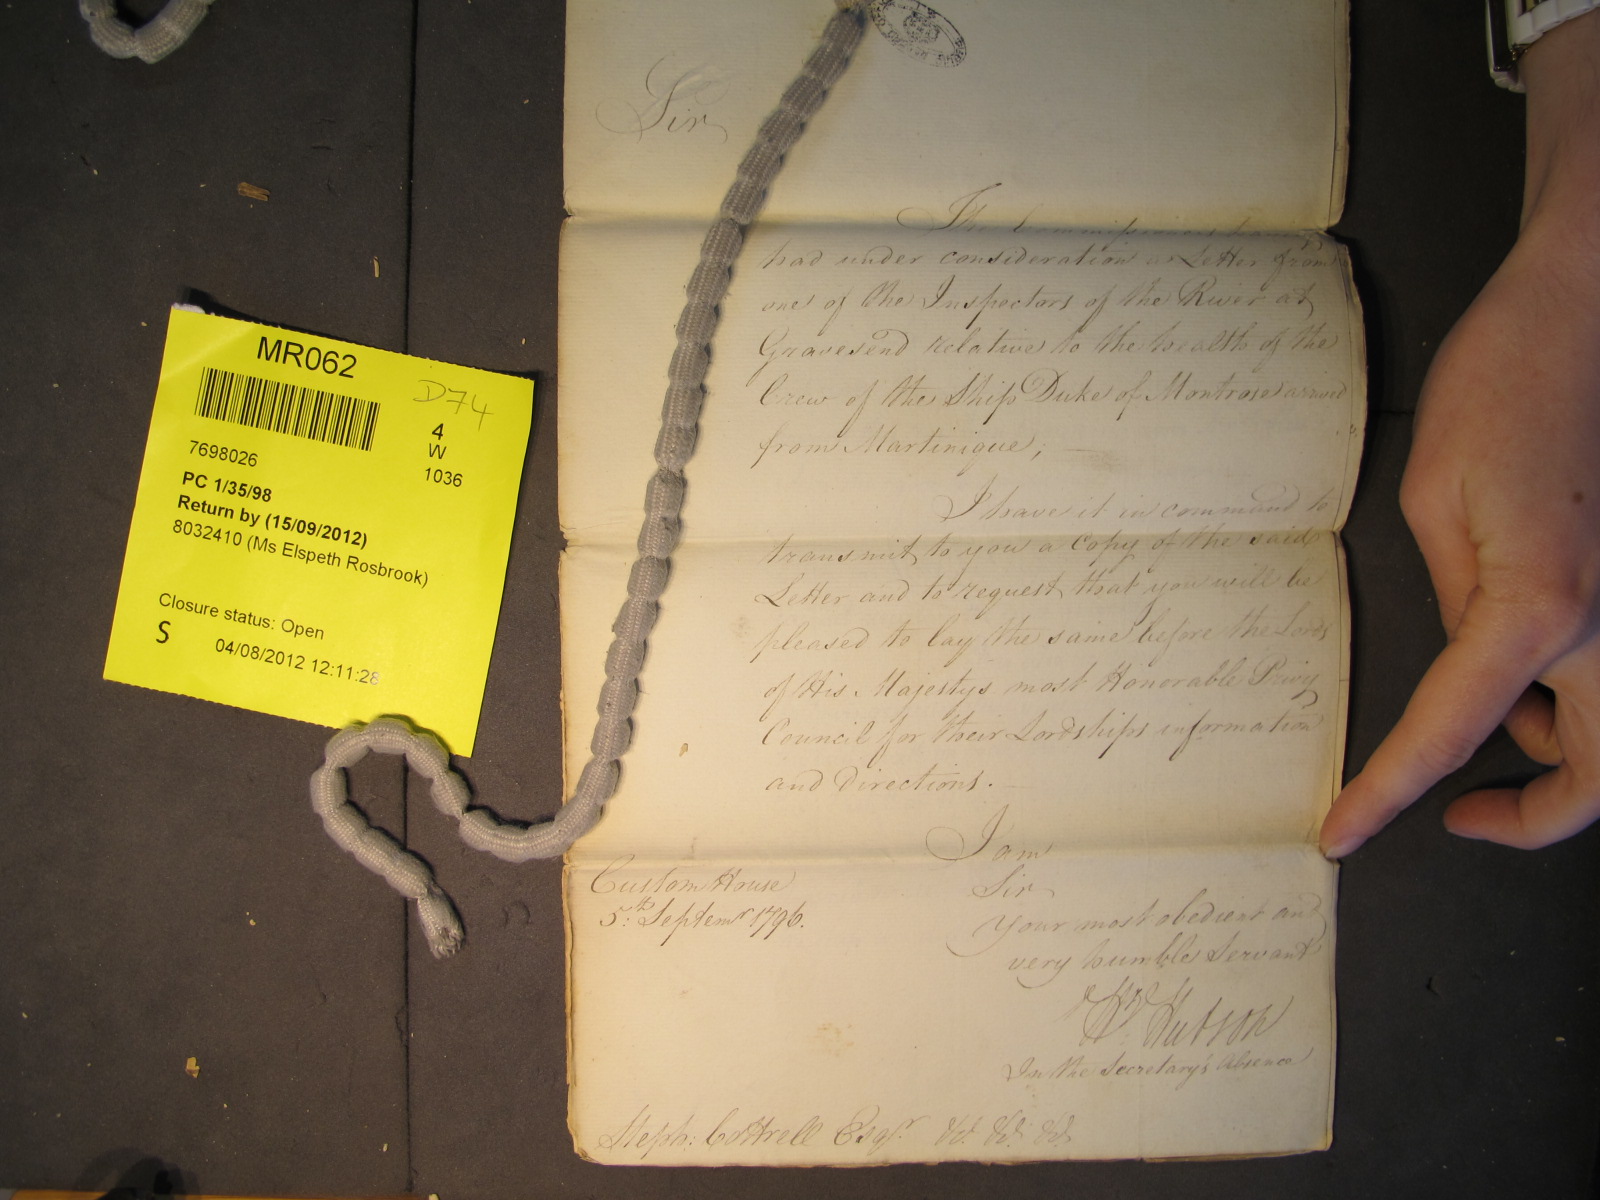 MR062
D74
4
W
1036
7698026
PC 1/35/98
Return by (15/09/2012)
8032410 (Ms Elspeth Rosbrook)
Closure status: Open
S
04/08/2012 12:11:28
Sir
The Commissioners having
had under consideration a Letter from
one of the Inspectors of the River at
Gravesend relative to the health of the
Crew of the Ship Duke of Montrose arrived
from Martinique;
I have it in command to
transmit to you a Copy of the said
Letter and to request that you will be
pleased to lay the same before the Lords
of His Majestys most Honorable Privy
Council for their Lordships information
and directions.
I am
Sir
Your most obedient and
very humble Servant
Custom House
5th Septemr 1796.
Wm Hutson
In the Secretary's Absence
Steph: Cottrell Esqr &c &c &c